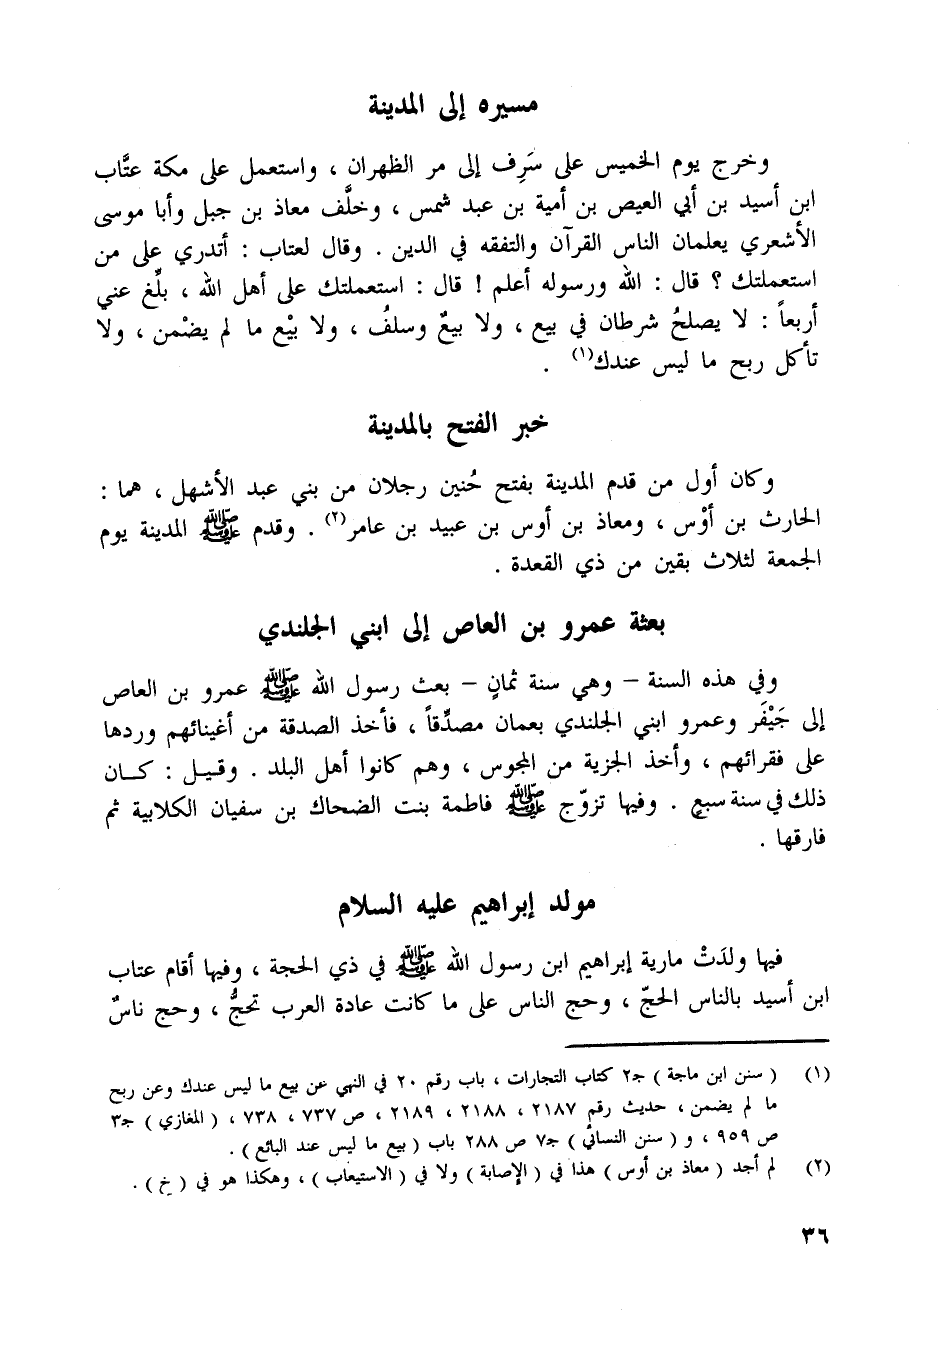 مسيره إلى المدينة
وخرج يوم الخميس على سَرِف إلى مر الظهران ، واستعمل على مكة عتَّاب
ابن أسيد بن أبي العيص بن أمية بن عبد شمس ، وخلَّف معاذ بن جبل وأبا موسى
الأشعري يعلمان الناس القرآن والتفقه في الدين . وقال لعتاب : أتدري على من
استعملتك ؟ قال : الله ورسوله أعلم ! قال : استعملتك على أهل الله ، بلِّغ عني
أربعاً : لا يصلحُ شرطان في بيع ، ولا بيعٌ وسلفُ ، ولا بيْع ما لم يضْمن ، ولا
تأكل ربح ما ليس عندك(١) .
خبر الفتح بالمدينة
وكان أول من قدم المدينة بفتح حُنين رجلان من بني عبد الأشهل ، هما :
الحارث بن أوْس ، ومعاذ بن أوس بن عبيد بن عامر(٢) . وقدم ﷺ المدينة يوم
الجمعة لثلاث بقين من ذي القعدة .
بعثة عمرو بن العاص إلى ابني الجلندي
وفي هذه السنة – وهي سنة ثمانٍ – بعث رسول الله ﷺ عمرو بن العاص
إلى جَيْفَر وعمرو ابني الجلندي بعمان مصدِّقاً ، فأخذ الصدقة من أغنيائهم وردها
على فقرائهم ، وأخذ الجزية من المجوس ، وهم كانوا أهل البلد . وقيل : كان
ذلك في سنة سبعٍ . وفيها تزوّج ﷺ فاطمة بنت الضحاك بن سفيان الكلابية ثم
فارقها .
مولد إبراهيم عليه السلام
فيها ولدَتْ مارية إبراهيم ابن رسول الله ﷺ في ذي الحجة ، وفيها أقام عتاب
ابن أسيد بالناس الحجّ ، وحج الناس على ما كانت عادة العرب تحجُّ ، وحج ناسٌ
(١) ( سنن ابن ماجة ) جـ٢ كتاب التجارات ، باب رقم ٢٠ في النهي عن بيع ما ليس عندك وعن ربح
ما لم يضمن ، حديث رقم ٢١٨٧ ، ٢١٨٨ ، ٢١٨٩ ، ص ٧٣٧ ، ٧٣٨ ، ( المغازي ) جـ٣
ص ٩٥٩ ، و ( سنن النسائي ) جـ٧ ص ٢٨٨ باب ( بيع ما ليس عند البائع ) .
(٢) لم أجد ( معاذ بن أوس ) هذا في ( الإصابة ) ولا في ( الاستيعاب ) ، وهكذا هو في ( خ ) .
٣٦